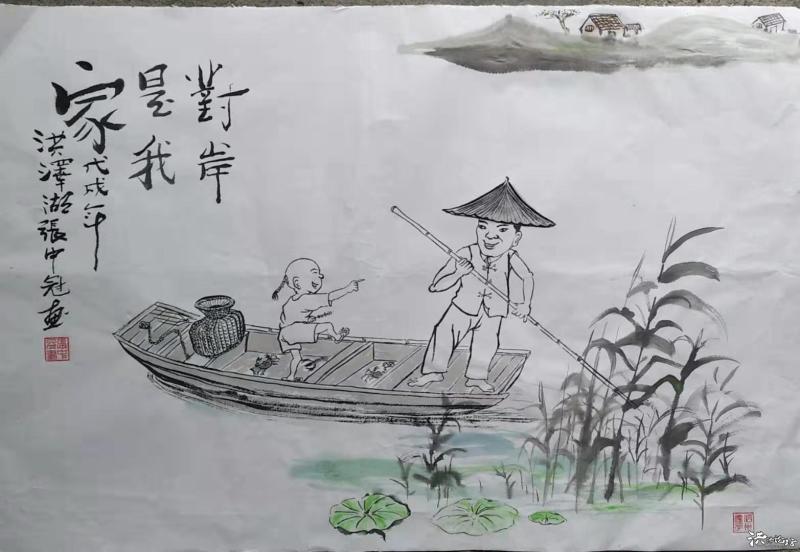 對岸
是我
家
戊戌年
洪澤湖張中冠畫